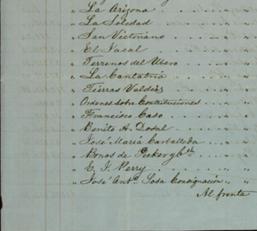 " La Arizona " "
" La Soledad " "
" San Victoriano " "
" El Jacal " "
" Terrenos del "
" La Cantabria " "
" Tierras Valdés " "
" Ordenes sobre Contribuciones " "
" Francisco Caso " "
" Benito A. Dosal " "
" José María Carballeda " "
" Bonos de "
" E. J. Perry " "
" José Antº Sosa Consignación " "
Al frente